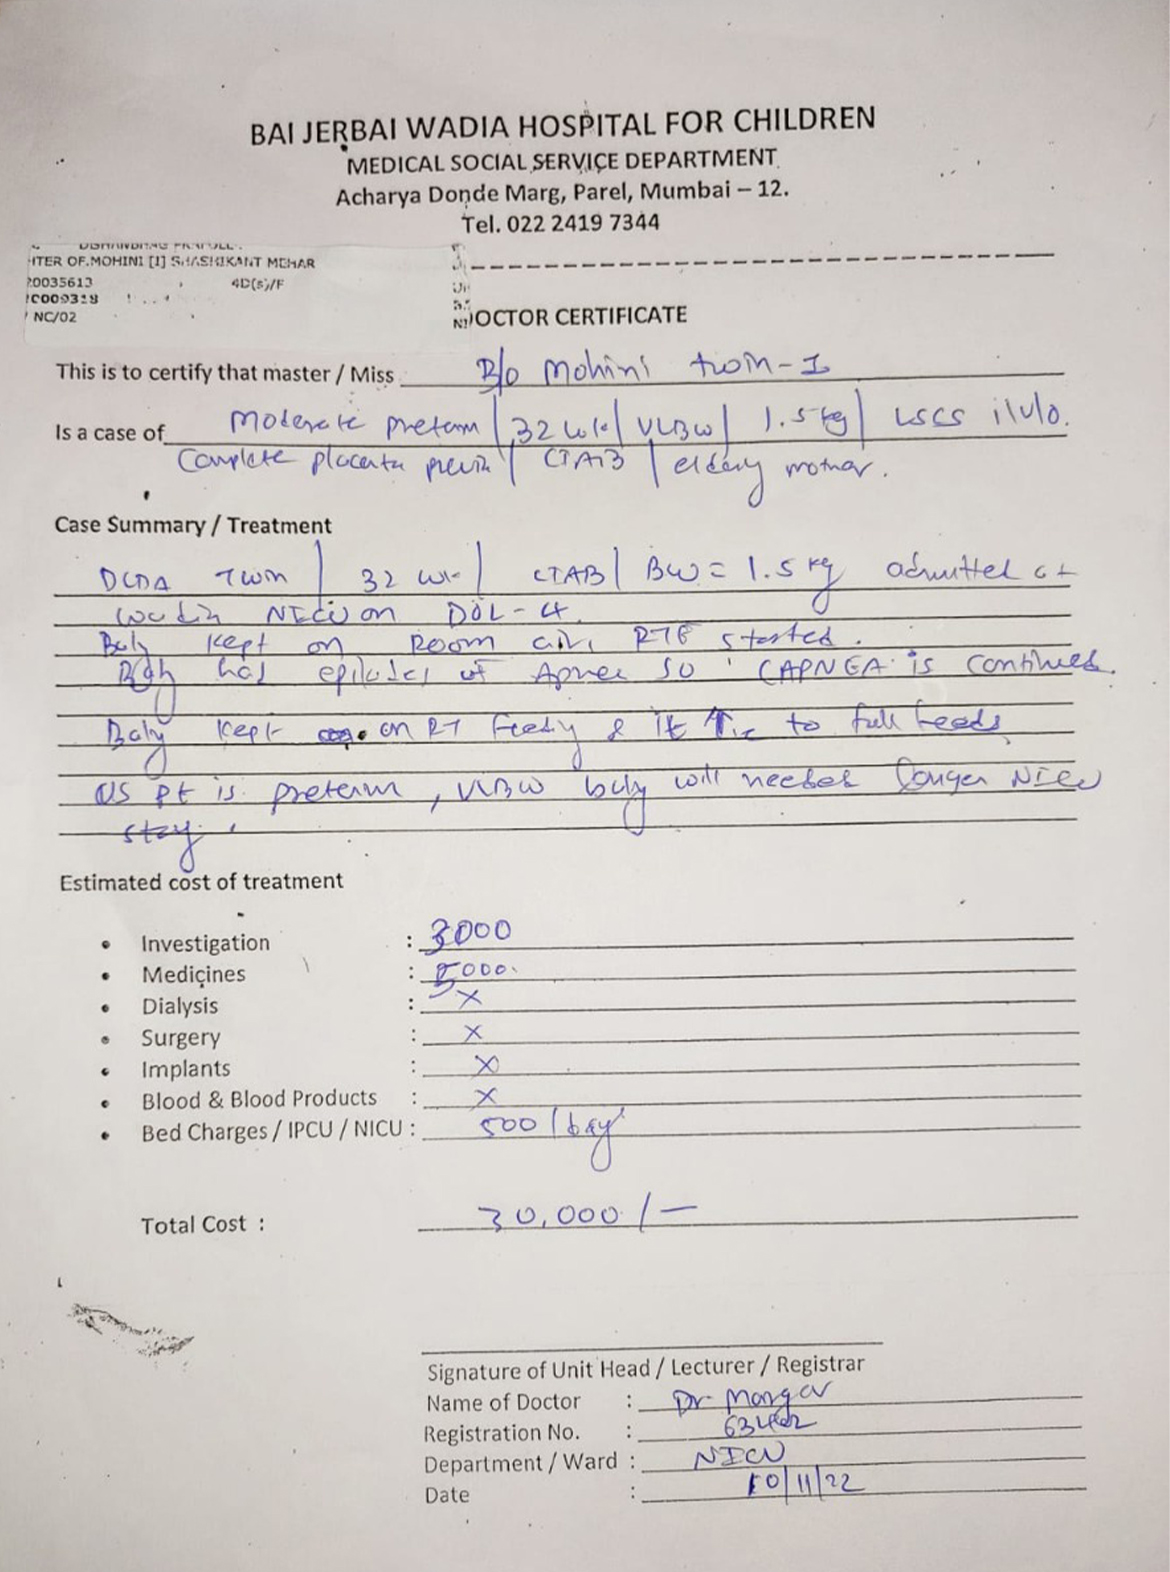 BAI JERBAI WADIA HOSPITAL FOR CHILDREN
MEDICAL SOCIAL SERVICE DEPARTMENT
Acharya Donde Marg, Parel, Mumbai – 12.
Tel. 022 2419 7344
ITER OF.MOHINI [1] SHASHIKANT MEHAR
20035613 4D(s)/F
C009318
NC/02
OCTOR CERTIFICATE
This is to certify that master / Miss B/o Mohini twin-I
Is a case of Moderate preterm / 32 wk / VLBW / 1.5 kg / LSCS i/v/o.
Complete placenta previa / CIAB / elderly mother.
Case Summary / Treatment
DCDA Twin / 32 wk / CIAB / BW = 1.5 kg admitted at
wadia NICU on DOL-4.
Baby kept on Room air, RTF started.
Baby had episodes of Apnea so CAPNEA is continued.
Baby kept on RT Feeding & to full feeds
as pt is preterm, VLBW baby will needed longer NICU
stay.
Estimated cost of treatment
• Investigation : 3000
• Medicines : 5000.
• Dialysis : X
• Surgery : X
• Implants : X
• Blood & Blood Products : X
• Bed Charges / IPCU / NICU : 500 / day
Total Cost : 30,000 /—
Signature of Unit Head / Lecturer / Registrar
Name of Doctor : Dr
Registration No. :
Department / Ward : NICU
Date : 10/11/22